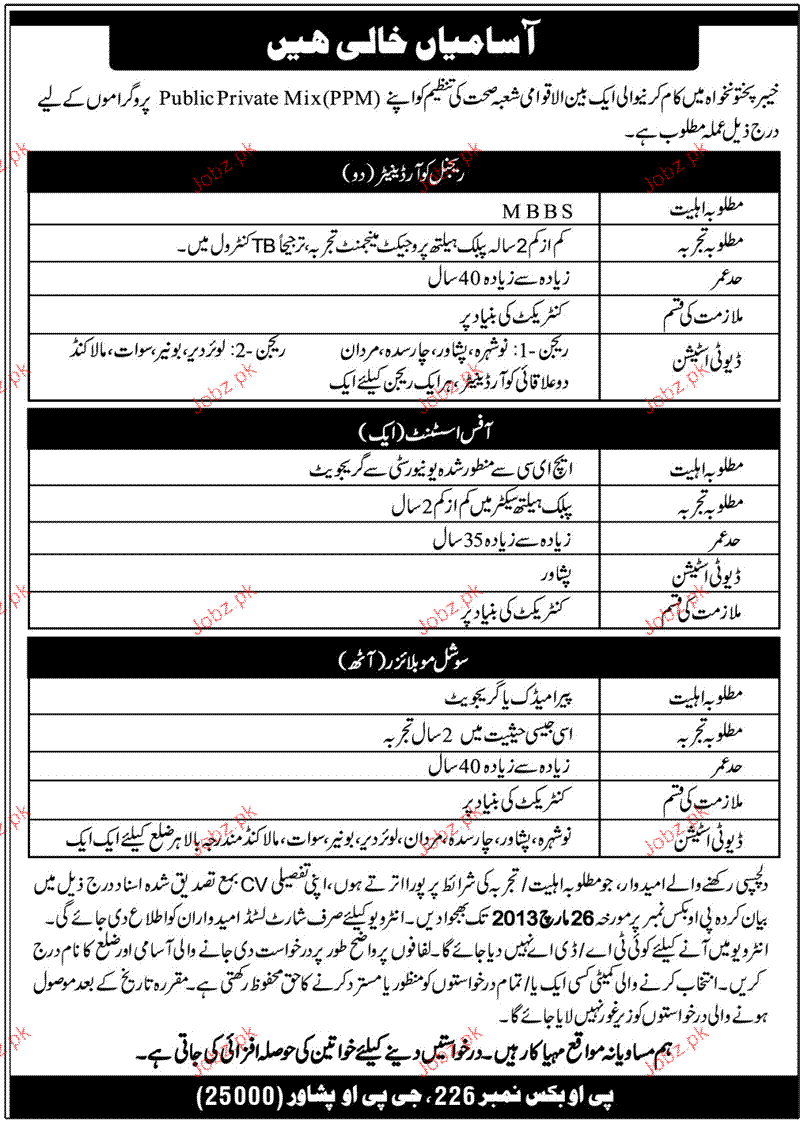 آسامیاں خالی ھیں
خیبر پختونخواہ میں کام کرنیوالی ایک بین الاقوامی شعبہ صحت کی تنظیم کو اپنے Public Private Mix (PPM) پروگراموں کے لیے
درج ذیل عملہ مطلوب ہے۔
ریجنل کوآرڈینیٹر (دو)
مطلوبہ اہلیت MBBS
مطلوبہ تجربہ کم از کم 2 سالہ پبلک ہیلتھ پروجیکٹ مینجمنٹ تجربہ، ترجیحاً TB کنٹرول میں۔
حد عمر زیادہ سے زیادہ 40 سال
ملازمت کی قسم کنٹریکٹ کی بنیاد پر
ڈیوٹی اسٹیشن ریجن -1: نوشہرہ، پشاور، چارسدہ، مردان ریجن -2: لوئر دیر، بونیر، سوات، مالاکنڈ
دو علاقائی کوآرڈینیٹر، ہر ایک ریجن کیلئے ایک
آفس اسسٹنٹ (ایک)
مطلوبہ اہلیت ایچ ای سی سے منظور شدہ یونیورسٹی سے گریجویٹ
مطلوبہ تجربہ پبلک ہیلتھ سیکٹر میں کم از کم 2 سال
حد عمر زیادہ سے زیادہ 35 سال
ڈیوٹی اسٹیشن پشاور
ملازمت کی قسم کنٹریکٹ کی بنیاد پر
سوشل موبلائزر (آٹھ)
مطلوبہ اہلیت پیرا میڈک یا گریجویٹ
مطلوبہ تجربہ اسی جیسی حیثیت میں 2 سال تجربہ
حد عمر زیادہ سے زیادہ 40 سال
ملازمت کی قسم کنٹریکٹ کی بنیاد پر
ڈیوٹی اسٹیشن نوشہرہ، پشاور، چارسدہ، مردان، لوئر دیر، بونیر، سوات، مالاکنڈ مندرجہ بالا ہر ضلع کیلئے ایک ایک
دلچسپی رکھنے والے امیدوار، جو مطلوبہ اہلیت/ تجربہ کی شرائط پر پورا اترتے ہوں، اپنی تفصیلی CV بمع تصدیق شدہ اسناد درج ذیل میں
بیان کردہ پی او بکس نمبر پر مورخہ 26 مارچ 2013 تک بھجوا دیں۔ انٹرویو کیلئے صرف شارٹ لسٹڈ امیدواران کو اطلاع دی جائے گی۔
انٹرویو میں آنے کیلئے کوئی ٹی اے/ ڈی اے نہیں دیا جائے گا۔ لفافوں پر واضح طور پر درخواست دی جانے والی آسامی اور ضلع کا نام درج
کریں۔ انتخاب کرنے والی کمیٹی کسی ایک یا/ تمام درخواستوں کو منظور یا مسترد کرنے کا حق محفوظ رکھتی ہے۔ مقررہ تاریخ کے بعد موصول
ہونے والی درخواستوں کو زیر غور نہیں لایا جائے گا۔
ہم مساویانہ مواقع مہیا کار ہیں۔ درخواستیں دینے کیلئے خواتین کی حوصلہ افزائی کی جاتی ہے۔
پی او بکس نمبر 226، جی پی او پشاور (25000)
Jobz.pk